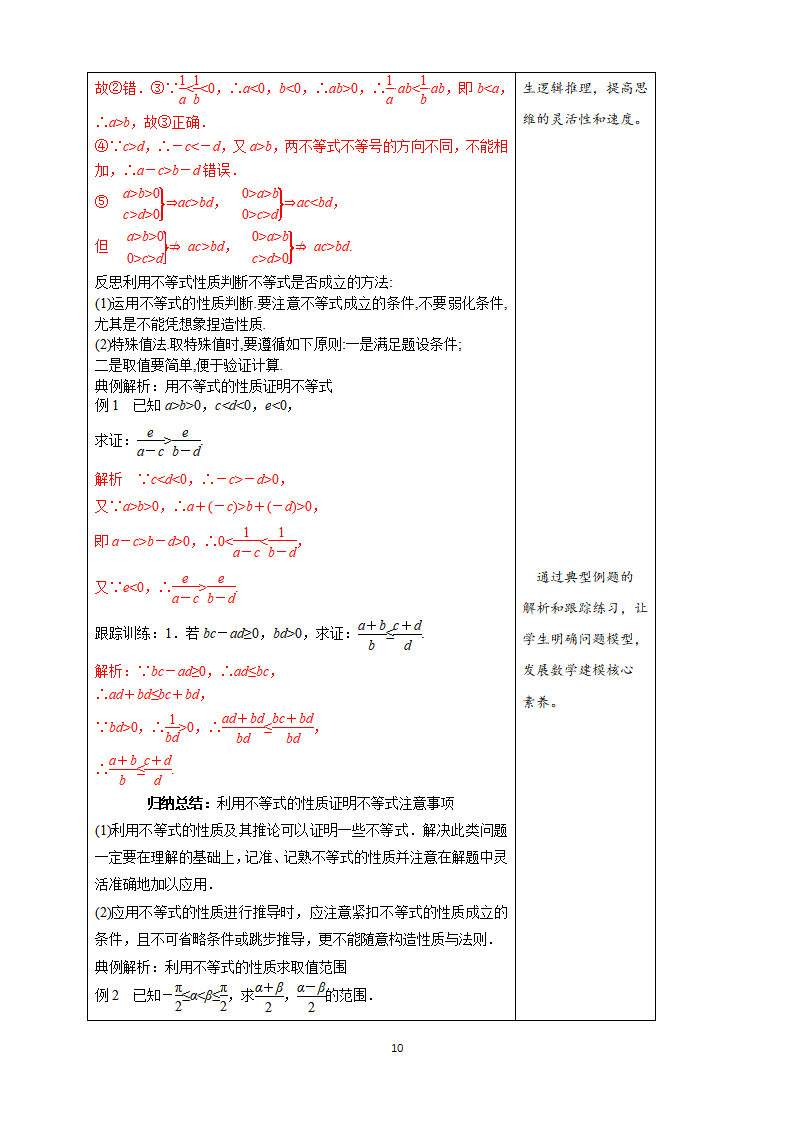 故②错．③∵1/a<1/b<0，∴a<0，b<0，∴ab>0，∴1/a·ab<1/b·ab，即 b<a，
∴a>b，故③正确．
④∵c>d，∴－c<－d，又 a>b，两不等式不等号的方向不同，不能相
加，∴a－c>b－d 错误．
⑤ a>b>0 c>d>0}⇒ac>bd， 0>a>b 0>c>d}⇒ac<bd，
但 a>b>0 0>c>d}⇏ ac>bd， 0>a>b c>d>0}⇏ ac>bd.
反思利用不等式性质判断不等式是否成立的方法:
(1)运用不等式的性质判断.要注意不等式成立的条件,不要弱化条件,
尤其是不能凭想象捏造性质.
(2)特殊值法.取特殊值时,要遵循如下原则:一是满足题设条件;
二是取值要简单,便于验证计算.
典例解析：用不等式的性质证明不等式
例 1 已知 a>b>0，c<d<0，e<0，
求证：e/(a－c)>e/(b－d).
解析 ∵c<d<0，∴－c>－d>0，
又∵a>b>0，∴a＋(－c)>b＋(－d)>0，
即 a－c>b－d>0，∴0<1/(a－c)<1/(b－d)，
又∵e<0，∴e/(a－c)>e/(b－d).
跟踪训练：1．若 bc－ad≥0，bd>0，求证：(a＋b)/b≤(c＋d)/d.
解析：∵bc－ad≥0，∴ad≤bc，
∴ad＋bd≤bc＋bd，
∵bd>0，∴1/bd>0，∴(ad＋bd)/bd≤(bc＋bd)/bd，
∴(a＋b)/b≤(c＋d)/d.
归纳总结：利用不等式的性质证明不等式注意事项
(1)利用不等式的性质及其推论可以证明一些不等式．解决此类问题
一定要在理解的基础上，记准、记熟不等式的性质并注意在解题中灵
活准确地加以应用．
(2)应用不等式的性质进行推导时，应注意紧扣不等式的性质成立的
条件，且不可省略条件或跳步推导，更不能随意构造性质与法则．
典例解析：利用不等式的性质求取值范围
例 2 已知－π/2≤α<β≤π/2，求(α＋β)/2，(α－β)/2的范围．
生逻辑推理，提高思
维的灵活性和速度。
通过典型例题的
解析和跟踪练习，让
学生明确问题模型，
发展数学建模核心
素养。
10